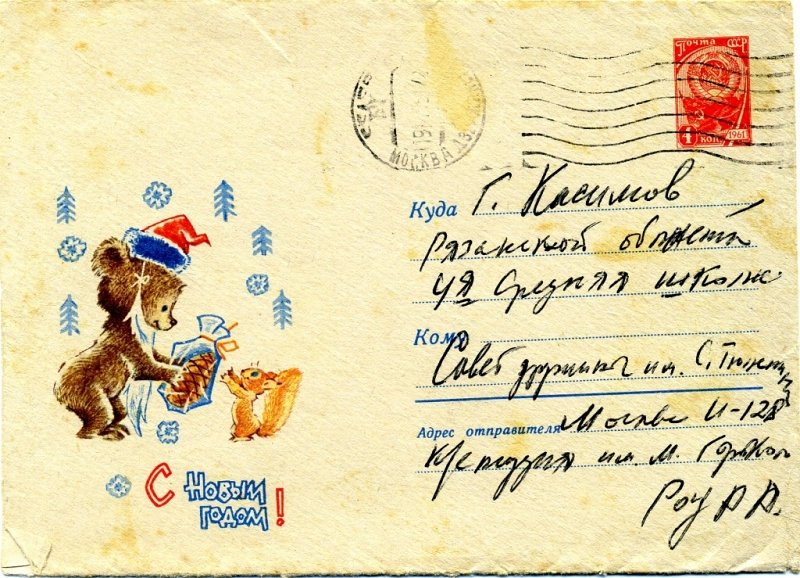 Почта СССР
4 коп. 1961
МОСКВА
Куда г. Касимов
Рязанской области
4я средняя школа
Кому
Совет дружины им. С.
Адрес отправителя Москва И-128
К/студия им. М. Горького
Роу А А.
С Новым
годом!